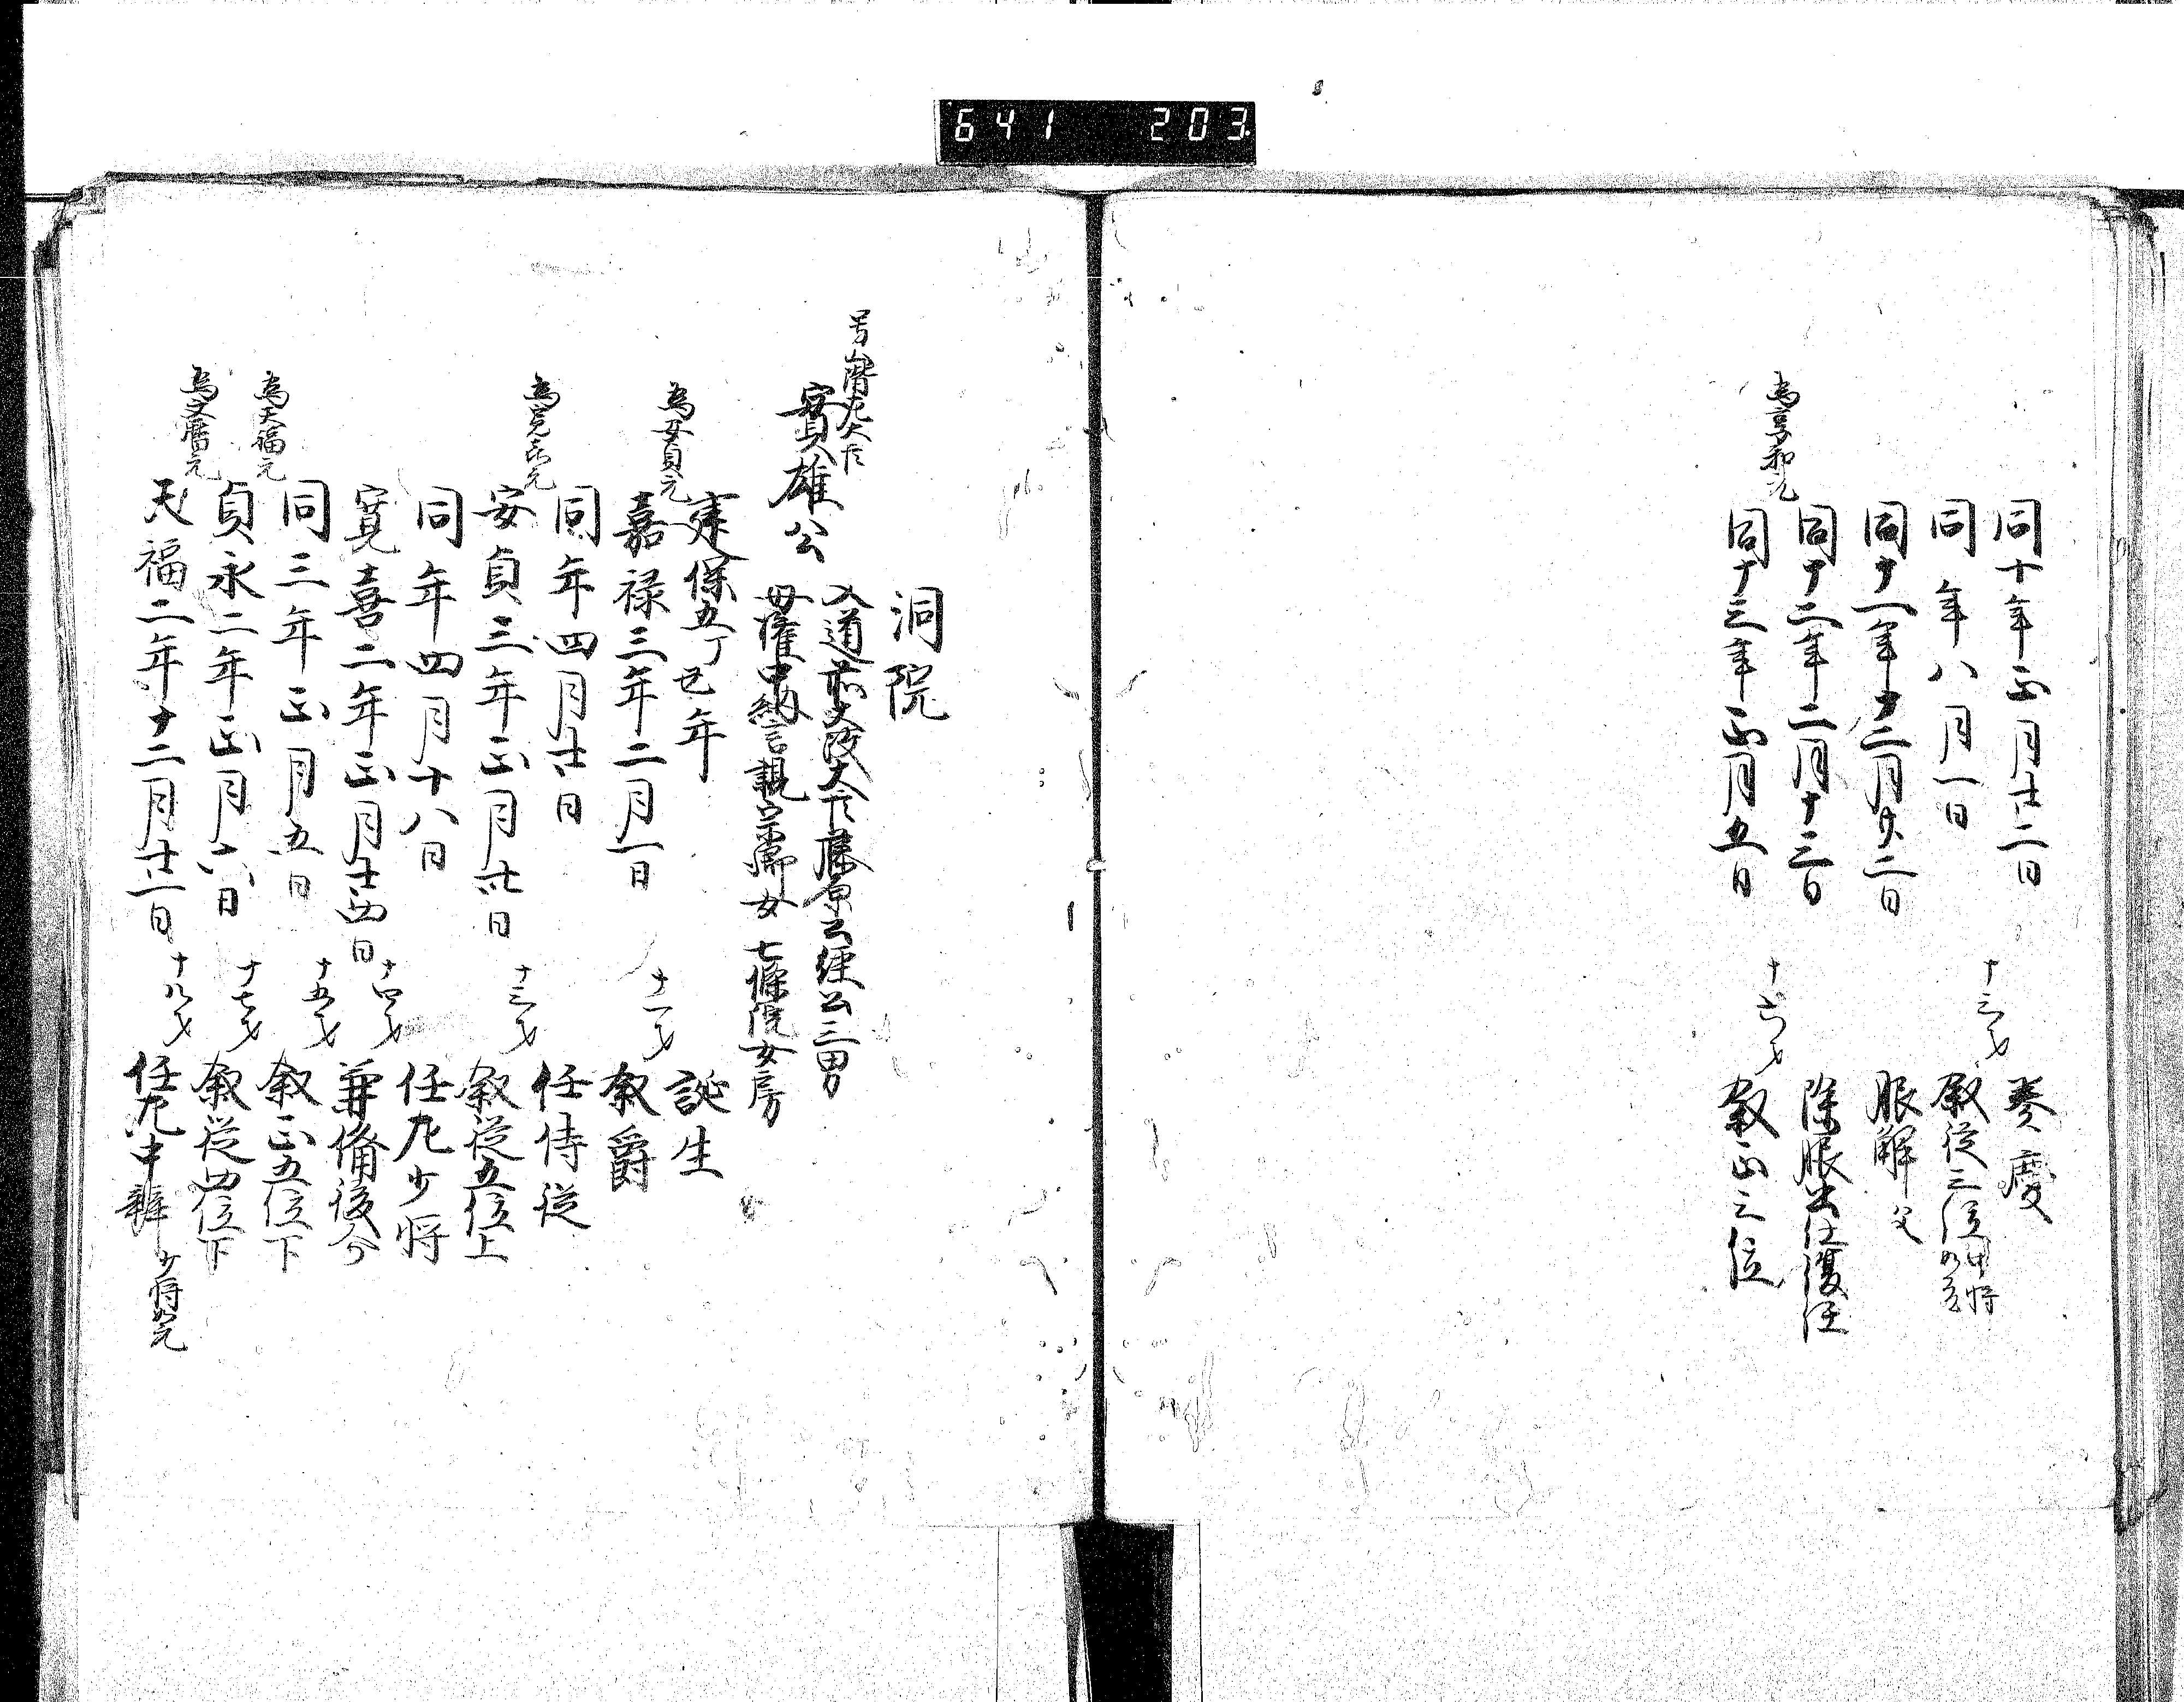 641 203
同十年正月廿二日 奏慶
同年八月一日 十三才 叙従三位 中将如元
同十一年十二月廿二日 服解 父
同十二年二月十三日 除服出仕復任
為享和元
同十三年正月五日 十六才 叙正三位
洞院
号山階左大臣
實雄公 入道前太政大臣藤原公經公三男
母權中納言親宗卿女 七條院女房
建保五丁丑年 誕生
為安貞元
嘉禄三年二月一日 十一才 叙爵
同年四月廿日 任侍従
為寛喜元
安貞三年正月卅日 十三才 叙従五位上
同年四月十八日 任左少将
寛喜二年正月廿四日 十四才 兼備後介
同三年正月五日 十五才 叙正五位下
為天福元
貞永二年正月六日 十七才 叙従四位下
為文暦元
天福二年十二月廿一日 十八才 任左中辨 少将如元